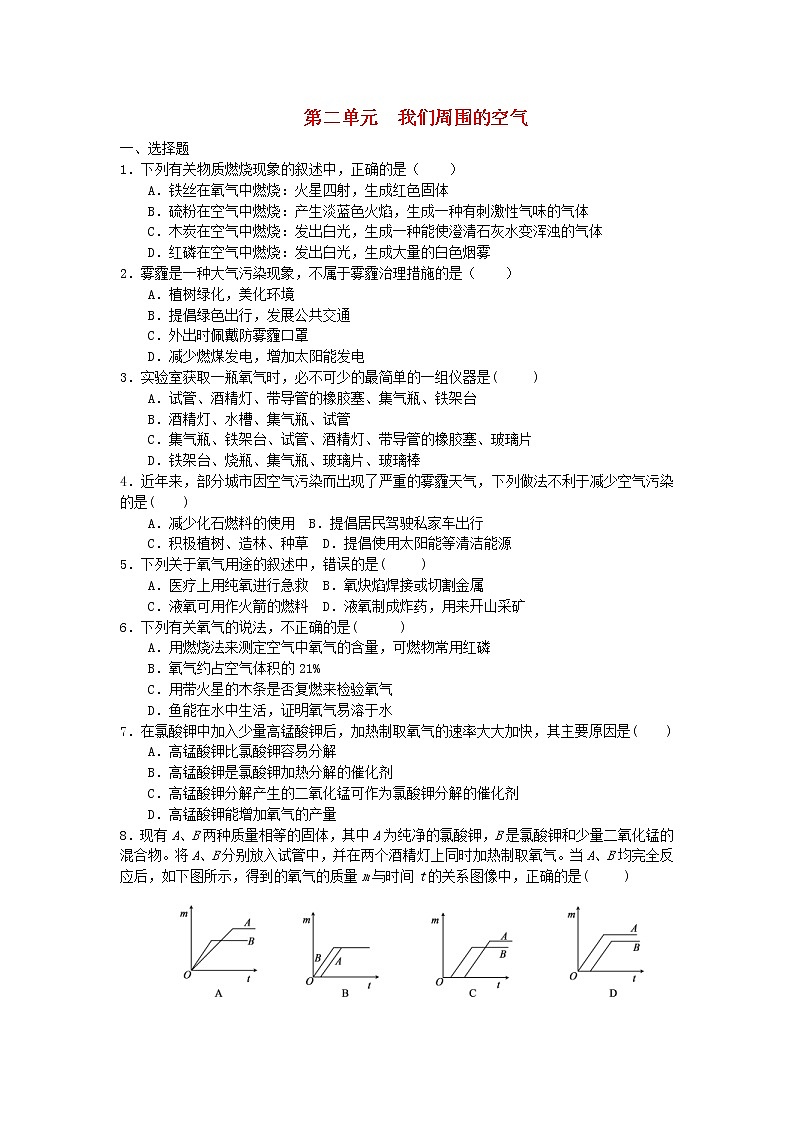 第二单元　我们周围的空气
一、选择题
1．下列有关物质燃烧现象的叙述中，正确的是（　　）
A．铁丝在氧气中燃烧：火星四射，生成红色固体
B．硫粉在空气中燃烧：产生淡蓝色火焰，生成一种有刺激性气味的气体
C．木炭在空气中燃烧：发出白光，生成一种能使澄清石灰水变浑浊的气体
D．红磷在空气中燃烧：发出白光，生成大量的白色烟雾
2．雾霾是一种大气污染现象，不属于雾霾治理措施的是（　　）
A．植树绿化，美化环境
B．提倡绿色出行，发展公共交通
C．外出时佩戴防雾霾口罩
D．减少燃煤发电，增加太阳能发电
3．实验室获取一瓶氧气时，必不可少的最简单的一组仪器是(　　)
A．试管、酒精灯、带导管的橡胶塞、集气瓶、铁架台
B．酒精灯、水槽、集气瓶、试管
C．集气瓶、铁架台、试管、酒精灯、带导管的橡胶塞、玻璃片
D．铁架台、烧瓶、集气瓶、玻璃片、玻璃棒
4．近年来，部分城市因空气污染而出现了严重的雾霾天气，下列做法不利于减少空气污染
的是(　　)
A．减少化石燃料的使用　B．提倡居民驾驶私家车出行
C．积极植树、造林、种草　D．提倡使用太阳能等清洁能源
5．下列关于氧气用途的叙述中，错误的是(　　)
A．医疗上用纯氧进行急救　B．氧炔焰焊接或切割金属
C．液氧可用作火箭的燃料　D．液氧制成炸药，用来开山采矿
6．下列有关氧气的说法，不正确的是(　　)
A．用燃烧法来测定空气中氧气的含量，可燃物常用红磷
B．氧气约占空气体积的21%
C．用带火星的木条是否复燃来检验氧气
D．鱼能在水中生活，证明氧气易溶于水
7．在氯酸钾中加入少量高锰酸钾后，加热制取氧气的速率大大加快，其主要原因是(　　)
A．高锰酸钾比氯酸钾容易分解
B．高锰酸钾是氯酸钾加热分解的催化剂
C．高锰酸钾分解产生的二氧化锰可作为氯酸钾分解的催化剂
D．高锰酸钾能增加氧气的产量
8．现有A、B两种质量相等的固体，其中A为纯净的氯酸钾，B是氯酸钾和少量二氧化锰的
混合物。将A、B分别放入试管中，并在两个酒精灯上同时加热制取氧气。当A、B均完全反
应后，如下图所示，得到的氧气的质量m与时间t的关系图像中，正确的是(　　)
m A B O t
A
m B A O t
B
m A B O t
C
m A B O t
D